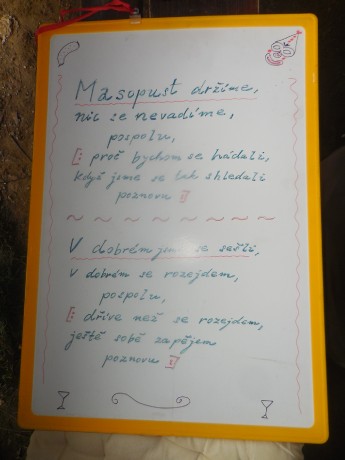 Masopust držíme,
nic se nevadíme,
pospolu,
[: proč bychom se hádali,
když jsme se tak shledali
poznovu :]
V dobrém jsme se sešli,
v dobrém se rozejdem,
pospolu,
[: dříve než se rozejdem,
ještě sobě zapějem
poznovu :]